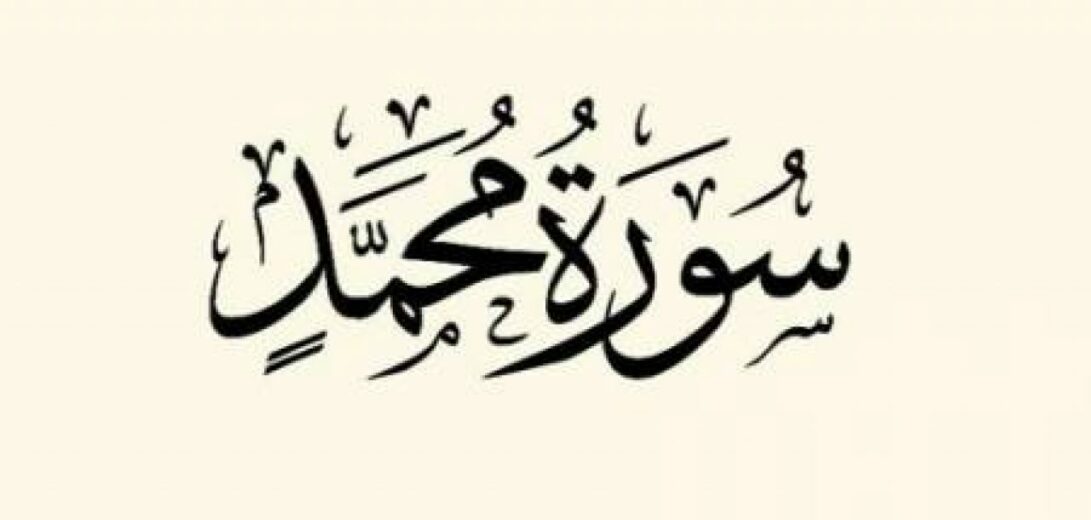 سُورَةُ مُحَمَّدٍ